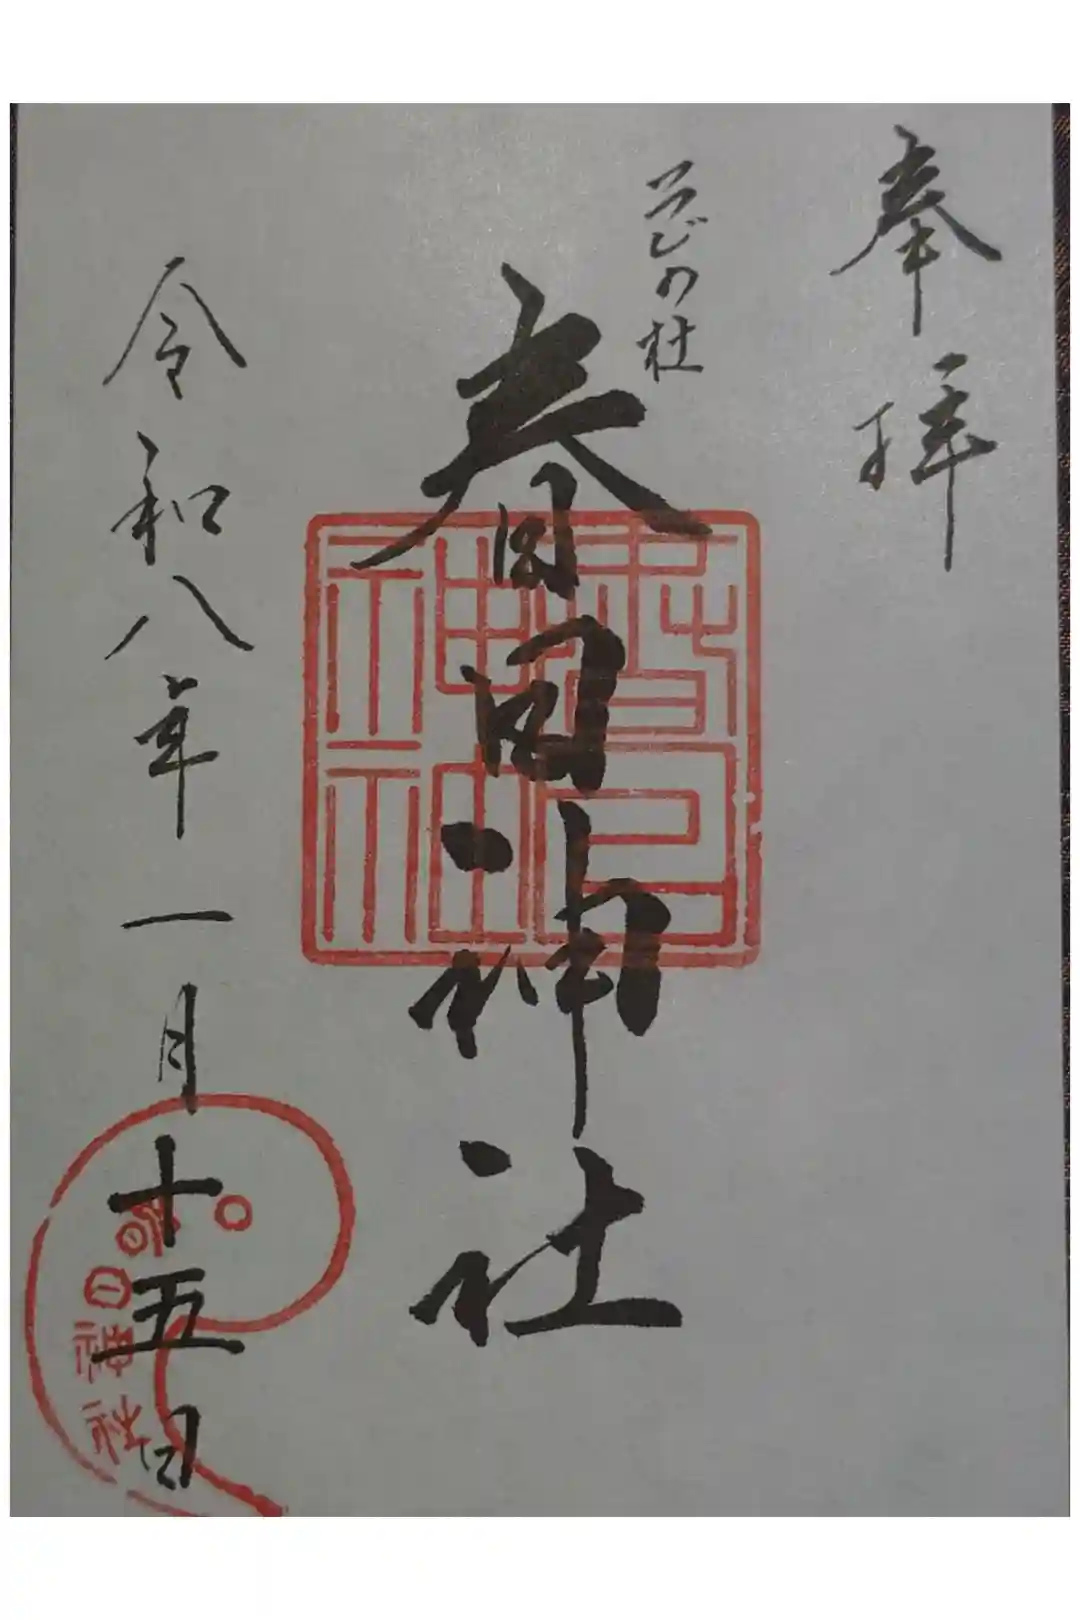 奉拝
の杜
春日神社
春日
神社
令和八年一月十五日
春日神社